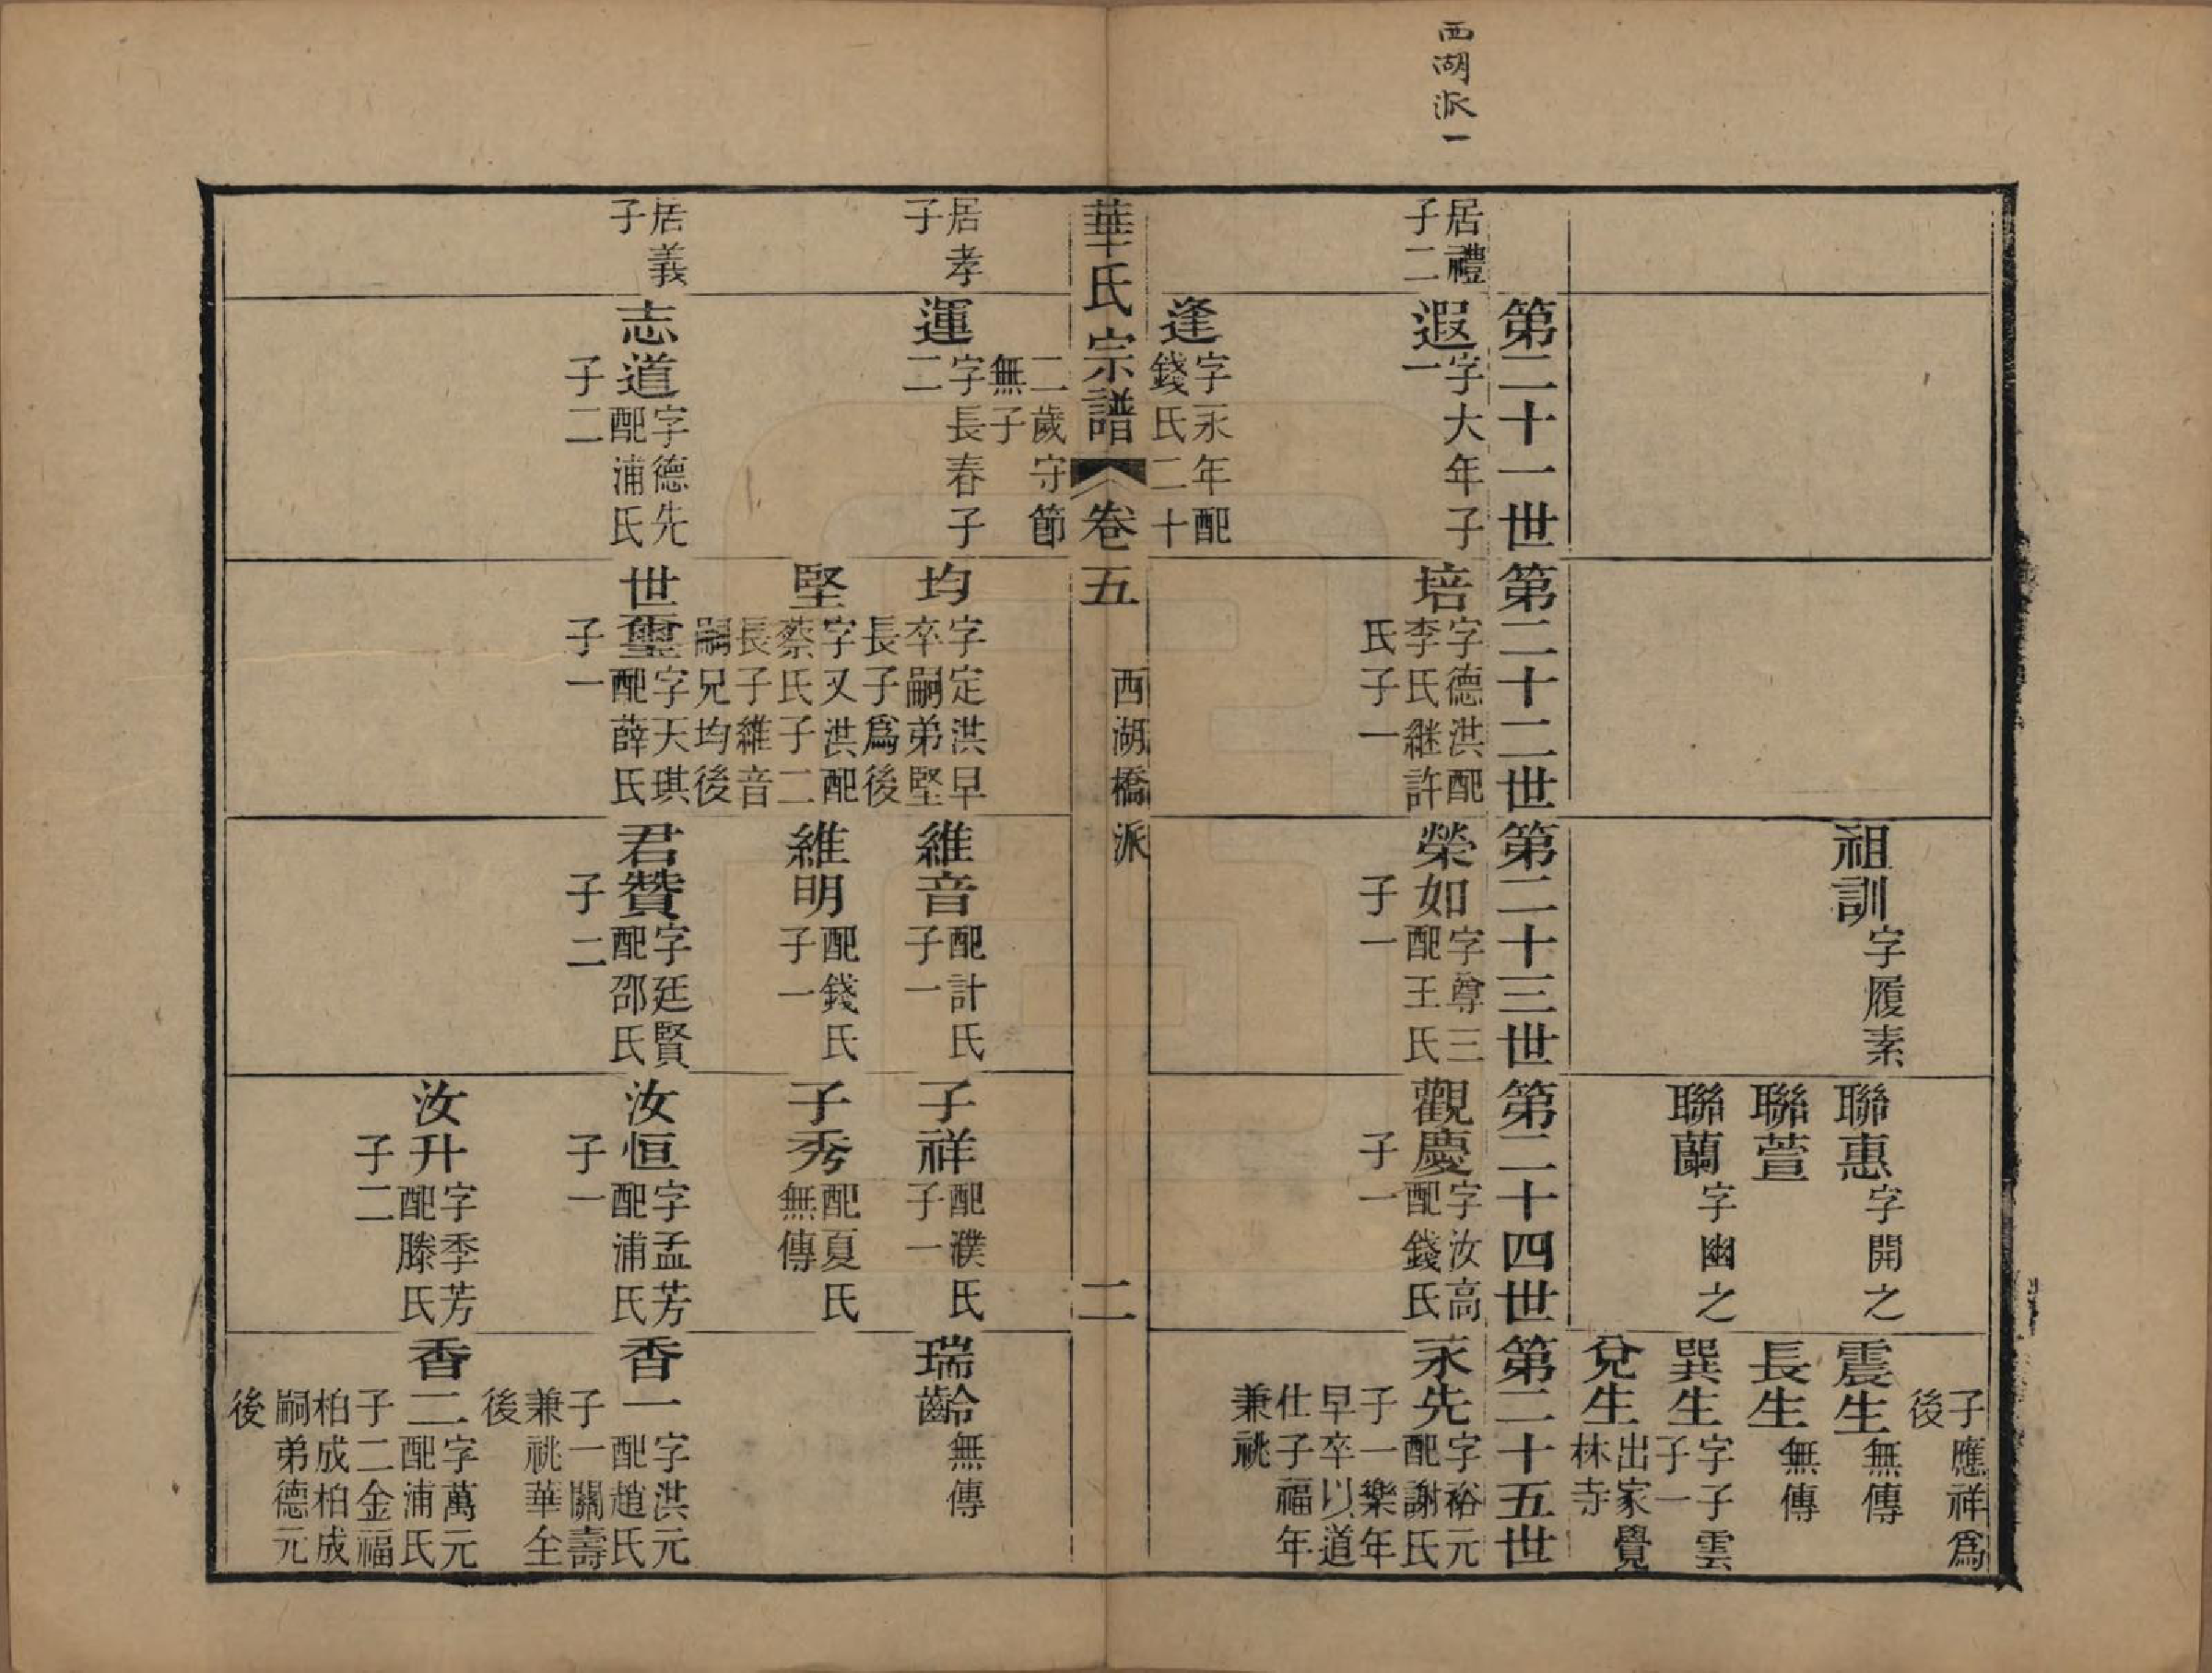 西湖派一
子應祥爲
後
祖訓
字履素
聯惠
字開之
震生
無傳
聯萱
長生
無傳
聯蘭
字幽之
巽生
字子雲
子一
兌生
出家覺
林寺
第二十一世
第二十二世
第二十三世
第二十四世
第二十五世
居禮
子二
遐
字大年子
一
培
字德洪配
李氏継許
氏子一
榮如
字尊三
配王氏
子一
觀慶
字汝高
配錢氏
子一
永先
字裕元
配謝氏
子一樂年
早卒以道
仕子福年
兼祧
逢
字永年配
錢氏二十
華氏宗譜
卷五
西湖橋派
二
二歲守節
無子
居孝
子
運
字長春子
二
均
字定洪早
卒嗣弟堅
長子爲後
維音
配計氏
子一
子祥
配濮氏
子一
瑞齡
無傳
堅
字又洪配
蔡氏子二
長子維音
嗣兄均後
維明
配錢氏
子一
子秀
配夏氏
無傳
居義
子
志道
字德先
配浦氏
子二
世璽
字天琪
配薛氏
子一
君贊
字廷賢
配邵氏
子二
汝恒
字孟芳
配浦氏
子一
香一
字洪元
配趙氏
子一關壽
兼祧華全
後
汝升
字季芳
配滕氏
子二
香二
字萬元
配浦氏
子二金福
柏成柏成
嗣弟德元
後